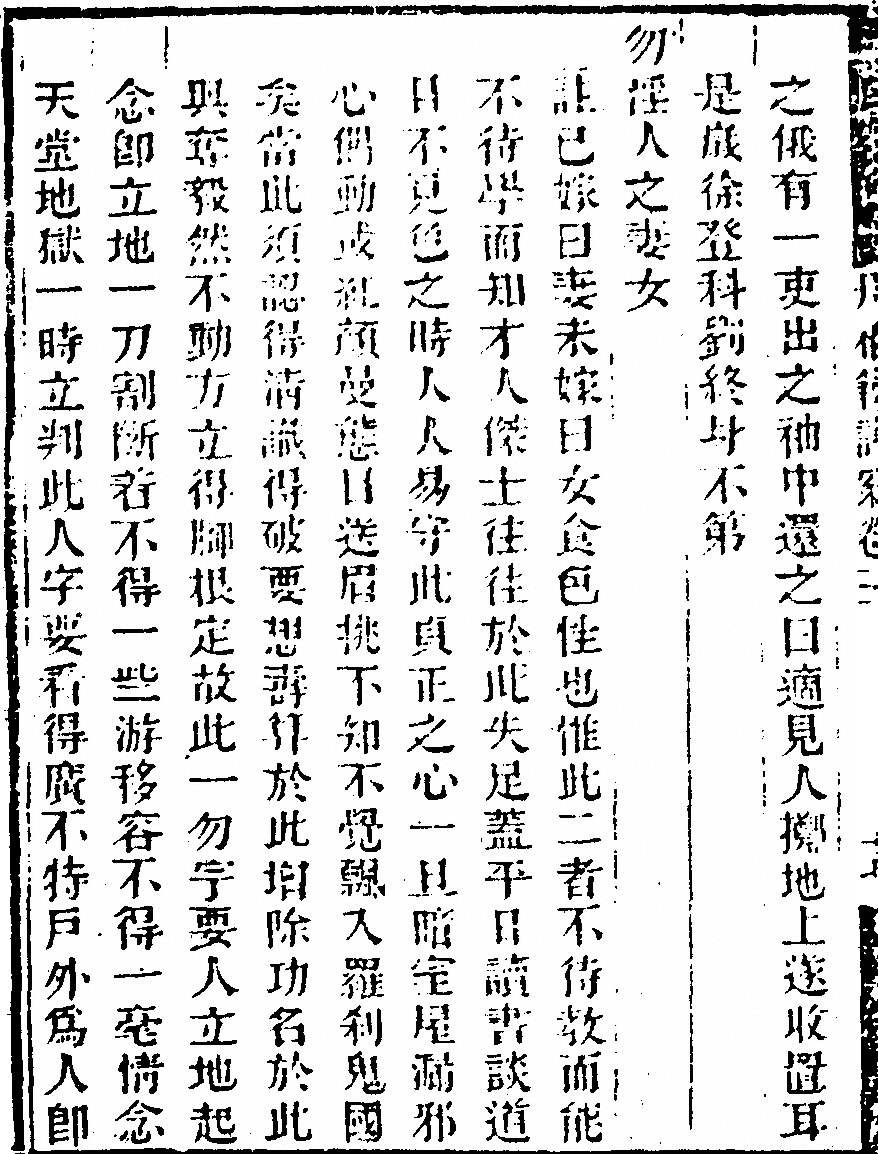 之俄有一吏出之袖中還之曰適見人擲地上遂收置耳
是歲徐登科劉終身不第
勿淫人之妻女
註已嫁曰妻未嫁曰女食色性也惟此二者不待教而能
不待學而知才人傑士往往於此失足蓋平日讀書談道
目不見色之時人人易守此貞正之心一旦暗室屋漏邪
心偶動或紅顏曼態目送眉挑不知不覺飄入羅刹鬼國
矣當此須認得清識得破要想壽算於此增除功名於此
與奪毅然不動方立得腳根定故此一勿字要人立地起
念卽立地一刀割斷著不得一些游移容不得一毫情念
天堂地獄一時立判此人字要看得廣不特戶外爲人卽